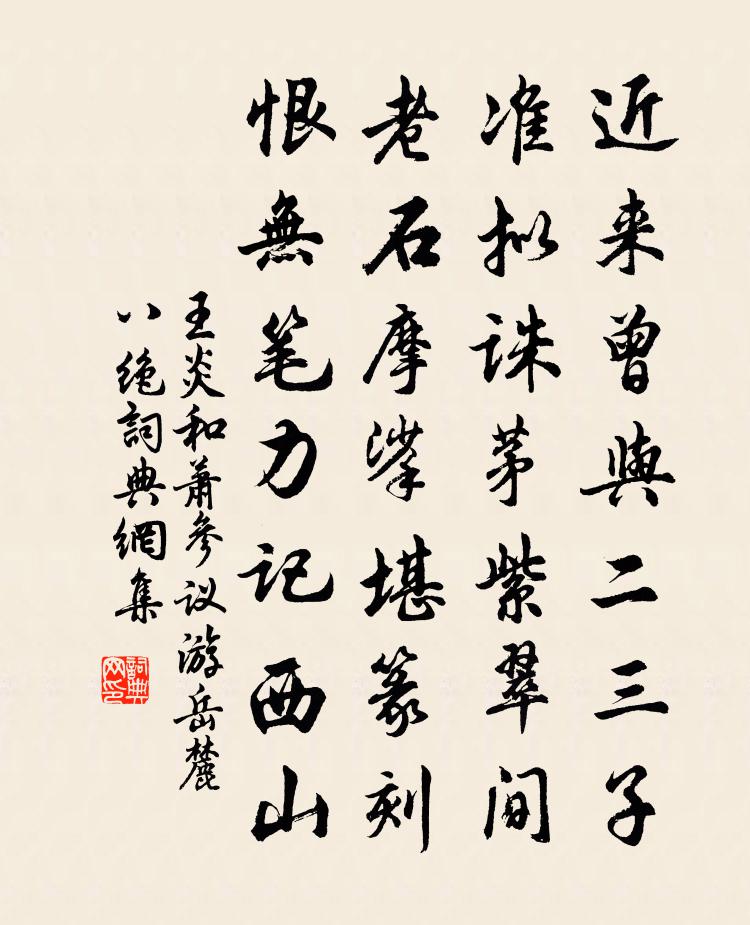 近来曾與二三子
准拟誅茅紫翠间
老石摩挲堪篆刻
恨無笔力记西山
王炎和萧參议游岳麓
八絶詞典網集
詞典网印